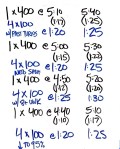 1 x 400 @ 5:10 5:40
(1:17) (1:25)
4 x 100 @ 1:20 1:25
w/ FAST TURNS
1 x 400 @ 5:00 5:30
(1:15) (1:22)
4 x 100 @ 1:20 1:25
1 x 400 @ 4:50 5:20
(1:12) (1:20)
4 x 100 @ 1:25 1:30
1 x 400 @ 4:40 5:10
(1:10) (1:17)
4 x 100 @ 1:20 1:25
↓ to 95%